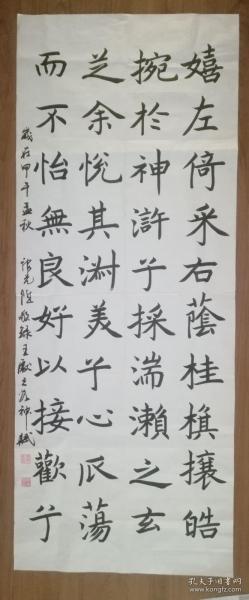 嬉左倚采右蔭桂旗攘皓
捥於神滸兮採湍瀨之玄
芝余悅其淑美兮心蕩
而不怡無良好以接歡兮
歲在甲午孟秋 錄王獻之洛神賦
孔夫子旧书网